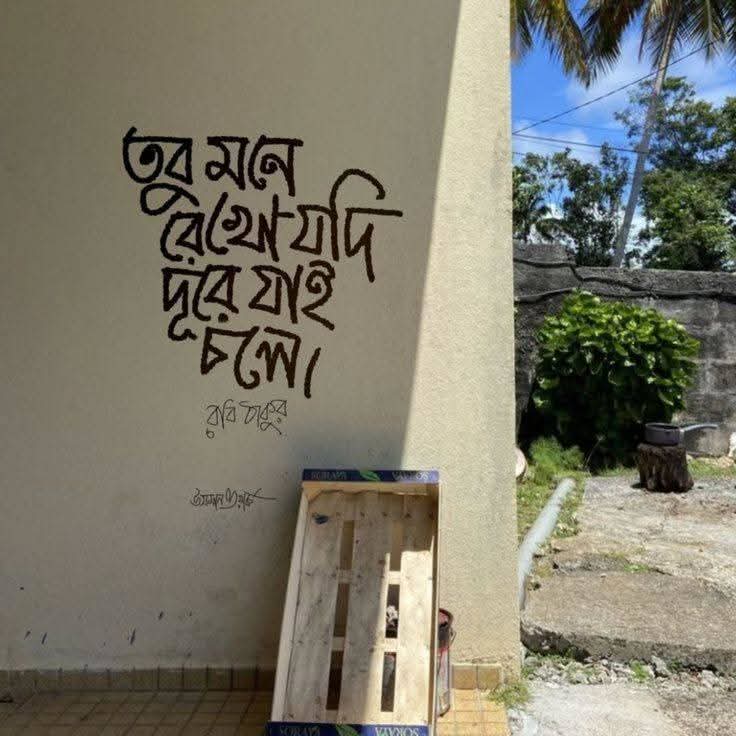 তবু মনে
রেখো যদি
দূরে যাই
চলে।
রবি ঠাকুর
SORAPA
SORAPA